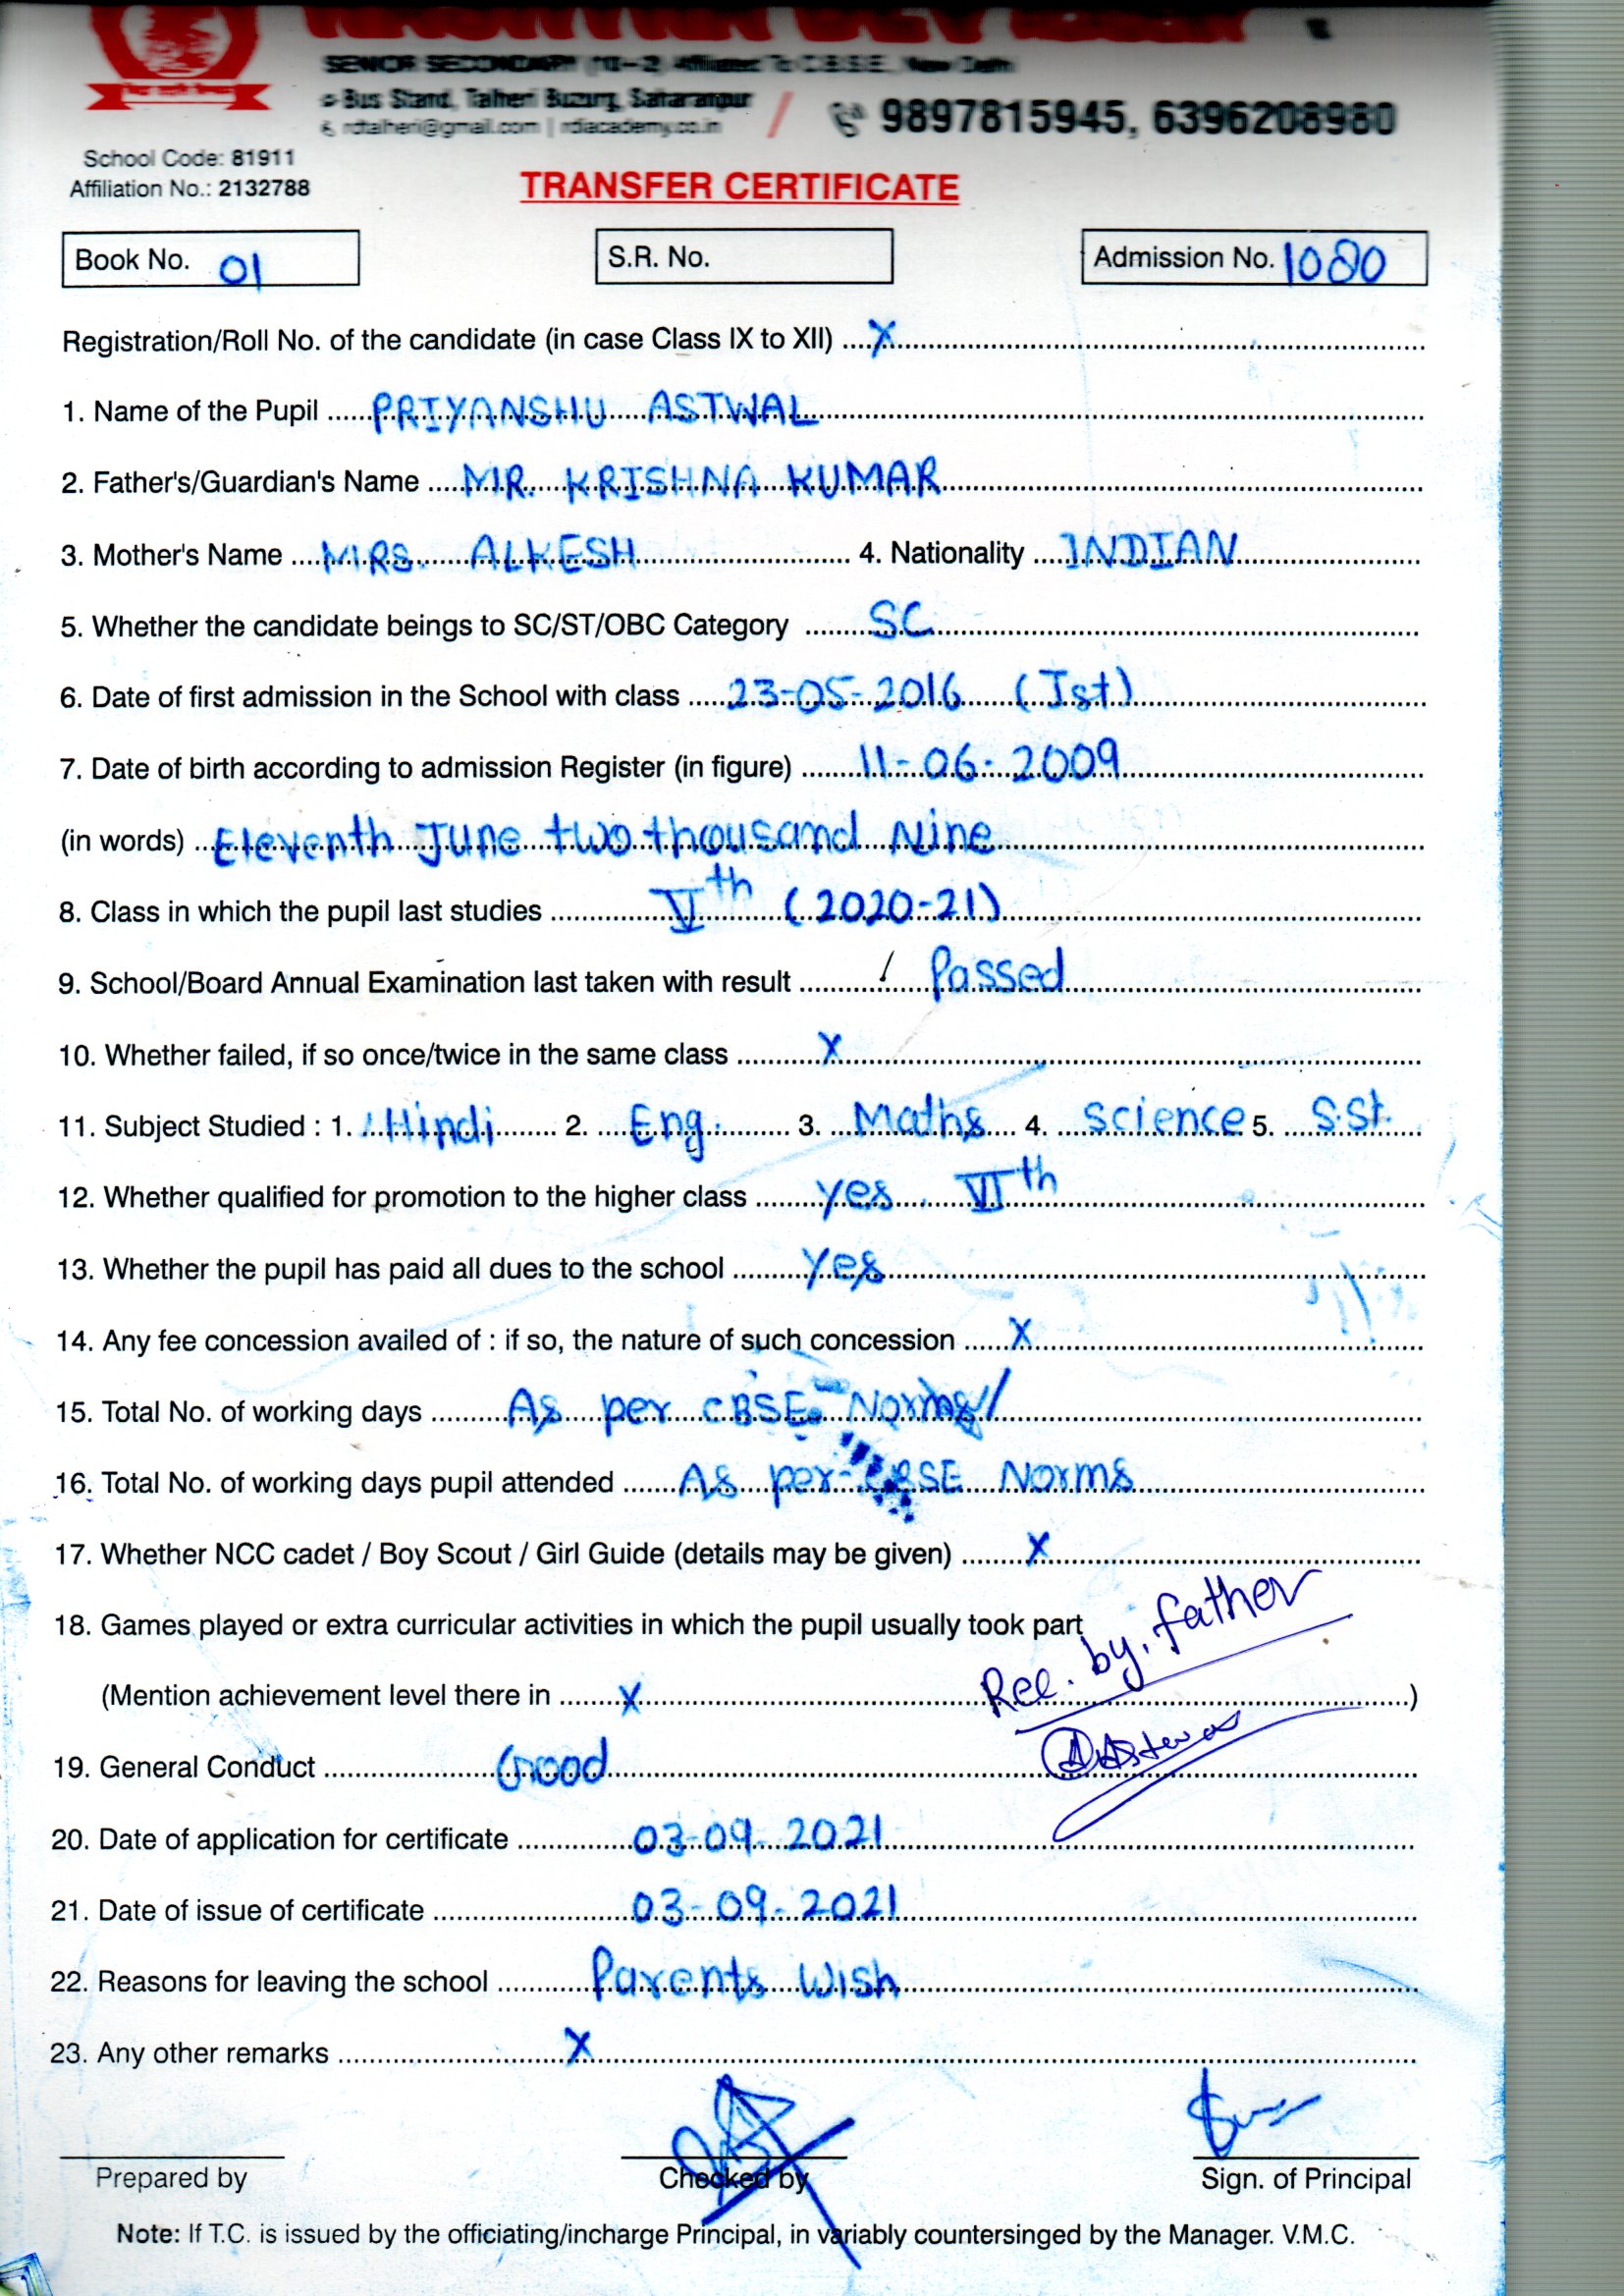 SENIOR SECONDARY (10+2) Affiliated To C.B.S.E., New Delhi
Bus Stand, Talheri Buzurg, Saharanpur
rditalheri@gmail.com | rdiacademy.co.in
9897815945, 6396208980
School Code: 81911
Affiliation No.: 2132788
TRANSFER CERTIFICATE
Book No. 01 S.R. No. Admission No. 1080
Registration/Roll No. of the candidate (in case Class IX to XII) ....X....
1. Name of the Pupil ..... PRIYANSHU ASTWAL
2. Father's/Guardian's Name .... MR. KRISHNA KUMAR
3. Mother's Name .... MRS. ALKESH .... 4. Nationality .... INDIAN
5. Whether the candidate beings to SC/ST/OBC Category .... SC
6. Date of first admission in the School with class .... 23-05-2016 (Ist)
7. Date of birth according to admission Register (in figure) .... 11-06-2009
(in words) .... Eleventh June two thousand Nine
8. Class in which the pupil last studies .... Vth (2020-21)
9. School/Board Annual Examination last taken with result .... Passed
10. Whether failed, if so once/twice in the same class .... X
11. Subject Studied : 1. Hindi .... 2. Eng. .... 3. Maths .... 4. Science 5. S.St.
12. Whether qualified for promotion to the higher class .... yes. VIth
13. Whether the pupil has paid all dues to the school .... Yes
14. Any fee concession availed of : if so, the nature of such concession .... X
15. Total No. of working days .... As per CBSE Norms
16. Total No. of working days pupil attended .... As per CBSE Norms
17. Whether NCC cadet / Boy Scout / Girl Guide (details may be given) .... X
18. Games played or extra curricular activities in which the pupil usually took part
(Mention achievement level there in .... X ....)
Rec. by. father
19. General Conduct .... Good
20. Date of application for certificate .... 03-09-2021
21. Date of issue of certificate .... 03-09-2021
22. Reasons for leaving the school .... Parents Wish
23. Any other remarks .... X
Prepared by Checked by Sign. of Principal
Note: If T.C. is issued by the officiating/incharge Principal, in variably countersinged by the Manager. V.M.C.